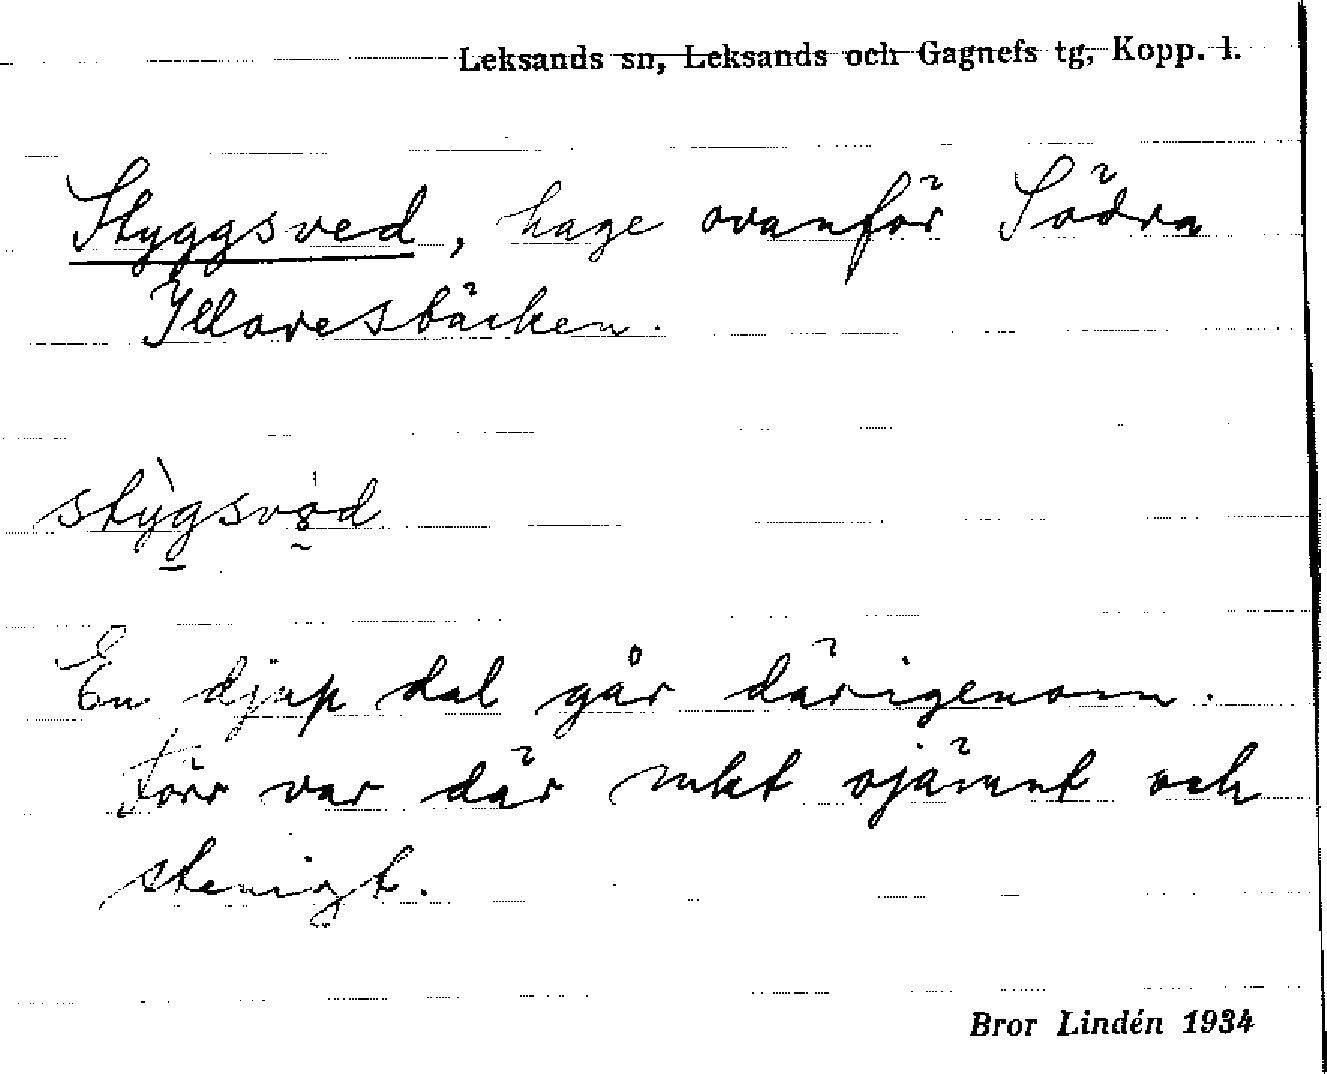 Leksands sn, Leksands och Gagnefs tg, Kopp. l.
Styggsved, hage ovanför Södra
Yllaresbäcken.
En djup dal går därigenom.
Förr var där mkt ojämnt och
stenigt.
Bror Lindén 1934